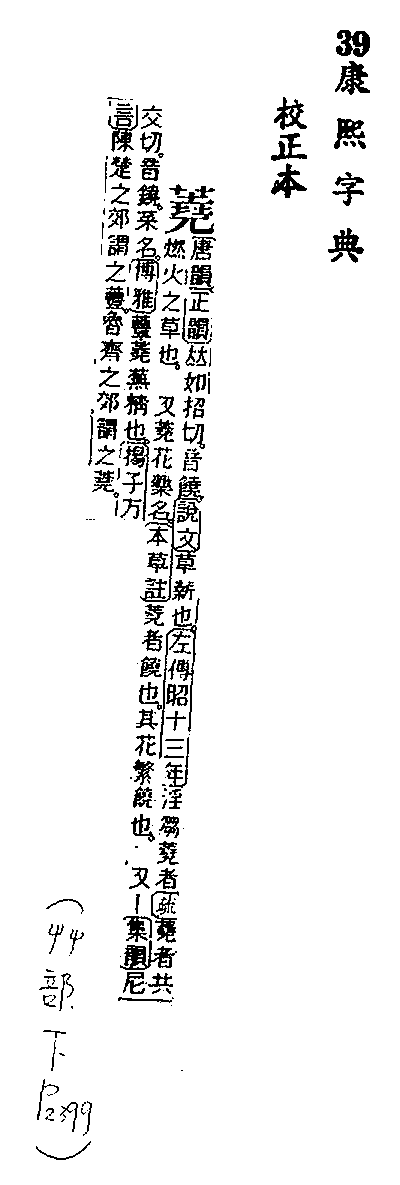 39康熙字典
校正本
蕘 唐韻正韻𠀤如招切。音饒。說文草薪也。左傳昭十三年淫芻蕘者疏蕘者共
燃火之草也。 又蕘花藥名。本草註蕘者饒也。其花繁饒也。 又|集韻尼
交切。音鐃。菜名。博雅蘴蕘蕪菁也。揚子方
言陳楚之郊謂之蘴。魯齊之郊謂之蕘。
(艸部下P2399)